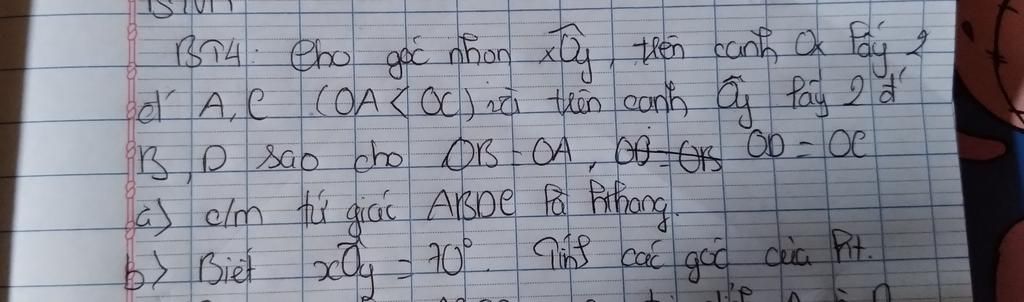 BT4: Cho góc nhọn xOy, trên cạnh Ox lấy 2
đ' A, C (OA < OC) rồi trên cạnh Oy lấy 2 đ'
B, D sao cho OB = OA, OD = OC
a) c/m tứ giác ABDC là hthang.
b) Biết xOy = 70°. Tính các góc của ht.